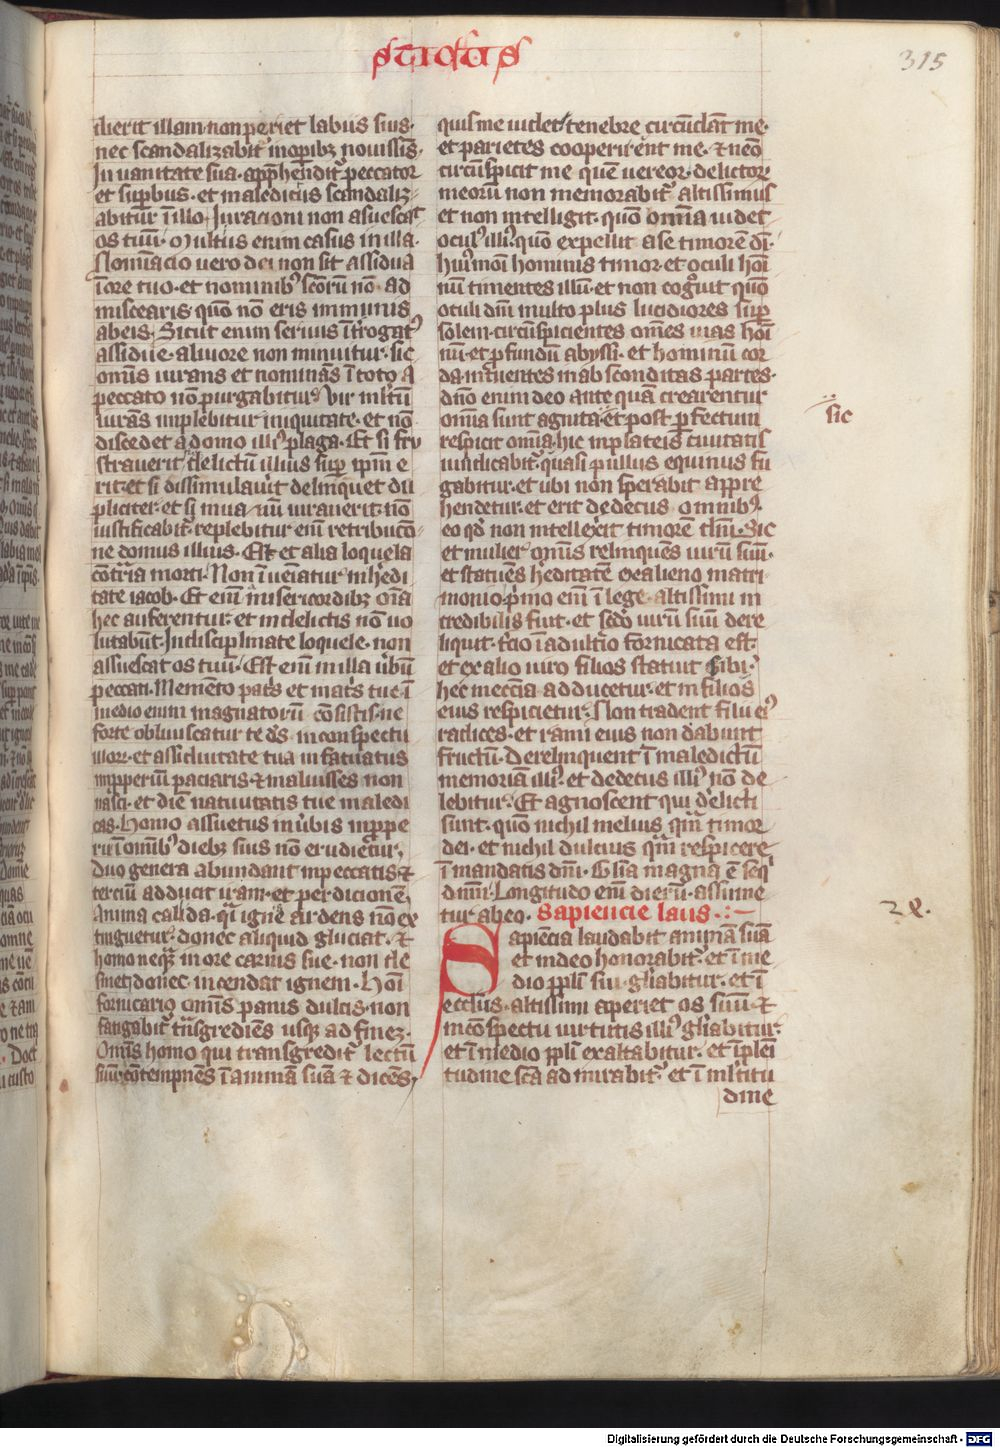 sticus
315
dierit illam. non periet labiis suis.
nec scandalizabit᷑ in operibꝫ nouissīs.
In uanitate sua app̄hendit᷑ peccator
et suꝑbus. et maledicus scandaliz
abitur ī illo. Iuracioni non asuescat
os tuū. Multus enim casus in illa.
Nominacio uero dei non sit assidua
ī ore tuo. et nominibꝰ sc̄orū nō ad
miscearis. quō nō eris immunis
ab eis. Sicut enim seruus īt̄rogatꝰ
assidue. a liuore non minuitur. sic
om̄is iurans et nominās ī toto a
peccato nō purgabitur. Vir ml̄tū
iurās implebitur iniquitate. et nō
discedet a domo illiꝰ plaga. Et si fru
strauerit delictū illius suꝑ ip̄m e
rit. et si dissimulau̾it delinquet du
pliciter. et si in uacuū iurauerit. nō
iustificabit᷑. replebitur em̄ retribucō
ne domus illius. Est et alia loquela
cōtͣria morti. Non īueniatur in h̾edi
tate iacob. Et enī a misericordibꝫ om̄a
hec auferentur. et in delictis nō uo
lutabūt᷑. Indisciplinate loquele. non
assuescat os tuū. Est enī in illa u̾bū
peccati. Memēto patͥs et matͥs tue. ī
medio enim magnatorū consistis. ne
forte obliuiscatur te dꝰs in conspectu
illoꝝ. et assiduitate tua in fatuatus
inproperiū paciaris. ⁊ maluisses non
nasci. et diē natiuitatis tue maledi
cas. Homo assuetus in u̾bis inprope
rii. ī omībꝰ diebꝫ suis nō erudietur.
Duo genera abundant in peccatis. ⁊
terciū adducit iram. et perdicionē.
Anima calida. qͣi ignē ardens nō ex
tinguetur. donec aliquid gluciat. ⁊
homo nequā in ore carnis sue. non de
sinet donec incendat ignem. Homī
fornicario om̄is panis dulcis. non
fatigabit᷑ tͣnsgrediēs usqꝫ ad finē.
Om̄is homo qui transgredit᷑ lectū
suū. contempnēs ī animā suā ⁊ dicēs.
quis me uidet. tenebre circūdāt me.
et parietes cooperiēnt me. ⁊ nēo
circūspicit me quē uereor. delictorū
meorū non memorabit᷑ altissimus
et non intelligit. quō om̄ia uidet
oculꝰ illiꝰ. quō expellit a se timorē dī.
huiꝰmōi hominis timor. et oculi homī
nū timentes illū. et non cog̾uit quō
oculi dn̄i multo plus lucidiores suꝑ
solem. circūspicientes om̄es uias homī
nū. et ꝓfundū abyssi. et hominū cor
da intuentes in absconditas partes.
dn̄o enim deo ante quā crearentur
om̄ia sunt agnita. et post ꝑfectum
respicit om̄ia. hic in plateis ciuitatis
iuīdicabit᷑. quasi pullus equinus fu
gabitur. et ubi non sperabit appre
hendetur. et erit dedecus omnibꝰ.
eo qđ non intellexit timorē dn̄i. Sic
et mulier om̄is relinquēs uirū suū.
et statuēs h̾editatē ex alieno matri
monio. pͥmo enī ī lege altissimi in
credibilis fuit. et sc̄do uirū suū dere
liquit. t̾cio ī adult̾io fornicata est.
et ex alio uiro filios statuit sibi.
hec in ecc̄ia adducetur. et in filios
eius respicietur. Non tradent filii eiꝰ
radices. et rami eius non dabunt
fructū. Derelinquent ī maledictū
memoriā illiꝰ. et dedecus illiꝰ nō de
lebitur. Et agnoscent qui derelicti
sunt. quō nichil melius qͣm timor
dei. et nichil dulcius qͣm respicere
ī mandatis dn̄i. Gl̄ia magna ē seqͥ
dn̄m. Longitudo enī dierū. assume
tur ab eo. Sapiencie laus.
Sapiēcia laudabit animā suā
et in deo honorabit᷑. et ī me
dio ppl̄i sui. gl̄iabitur. et ī
eccl̄iis. altissimi aperiet os suū. ⁊
in cōspectu uirtutis illiꝰ gl̄iabitur.
et ī medio ppl̄i exaltabitur. et ī pleni
tudine sc̄a admirabit᷑. et ī ml̄titu
dine
sic
Digitalisierung gefördert durch die Deutsche Forschungsgemeinschaft - DFG